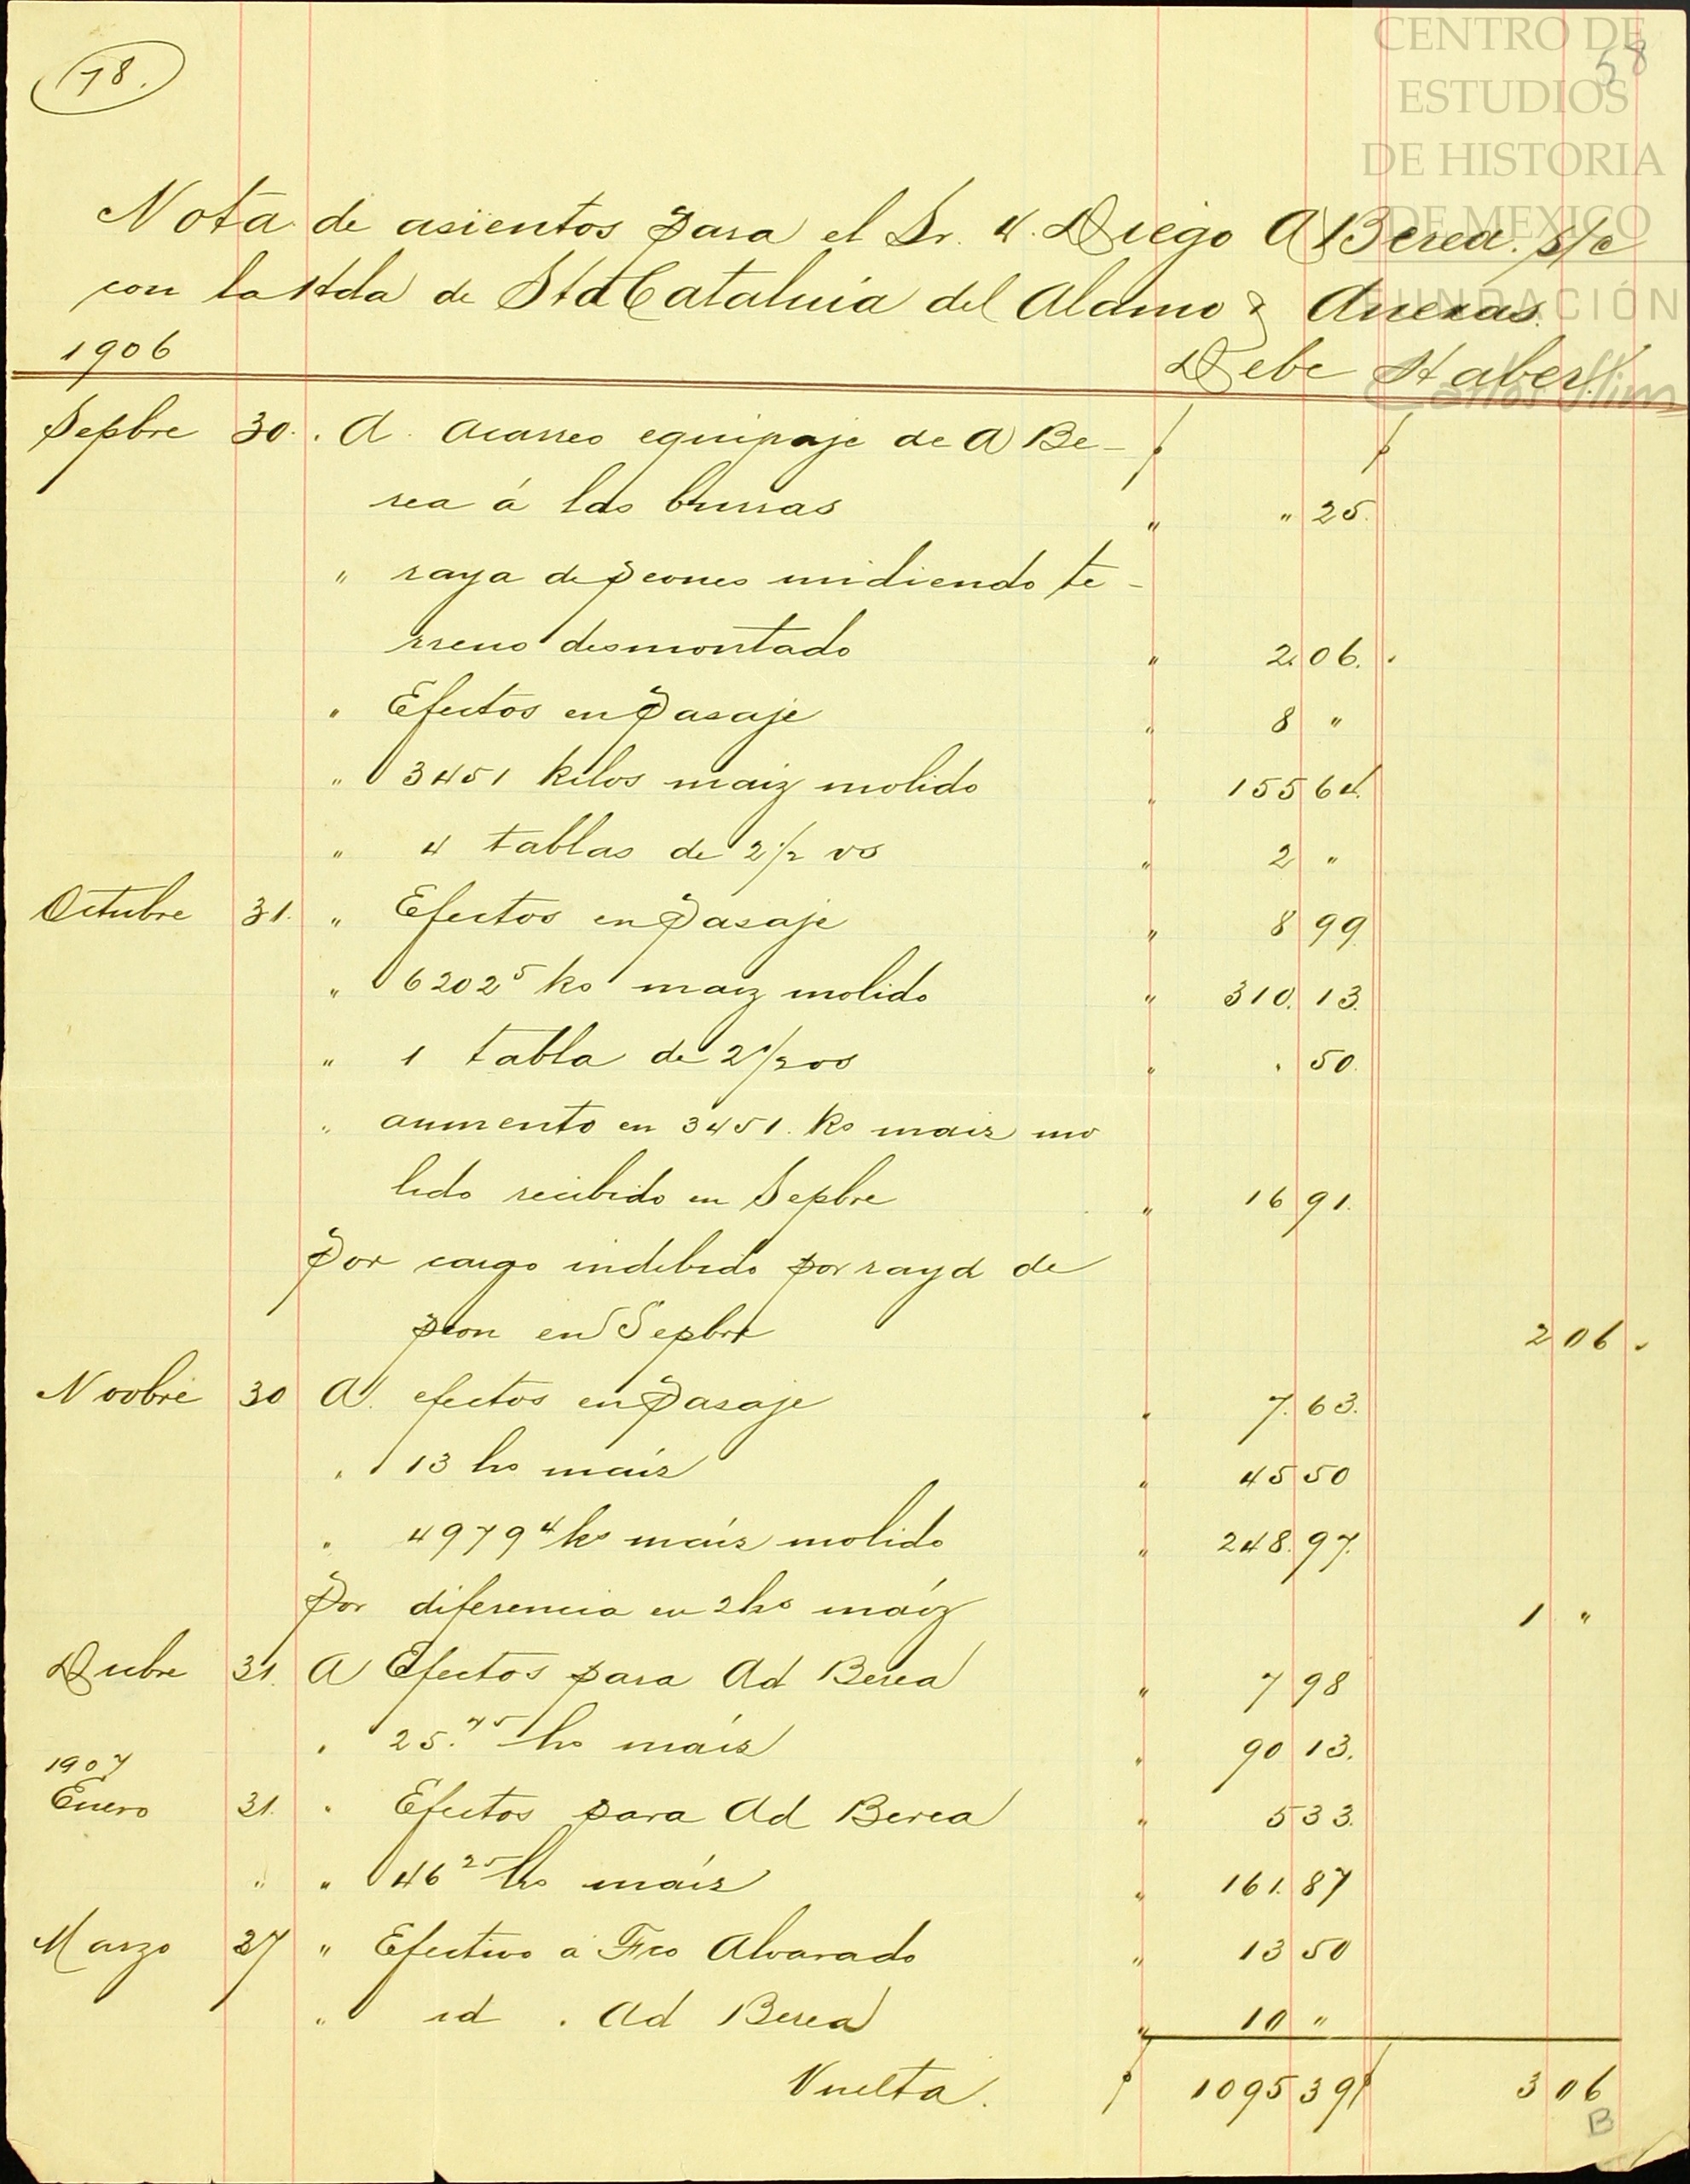 78.
58
CENTRO DE
ESTUDIOS
DE HISTORIA
DE MEXICO
FUNDACIÓN
Carlos Slim
Nota de asientos para el Sr. D. Diego A Berea. s/c
con la Hda de Sta Catalina del Alamo & Anexas.
1906 Debe Haber.
Sepbre 30. A. Acarreo equipaje de A Be-
rea á las burras " " 25.
" raya de peones midiendo te-
rreno desmontado " 2.06.
" Efectos en Pasaje " 8 "
" 3451 kilos maiz molido " 155 64.
" 4 tablas de 2 1/2 vs " 2 "
Octubre 31. " Efectos en Pasaje " 8 99
" 6202 5 ks maiz molido " 310. 13.
" 1 tabla de 2 1/2 vs " . 50.
" aumento en 3451. ks mais mo
lido recibido en Sepbre " 16 91.
Por cargo indebido por raya de
peon en Sepbre 2 06.
Novbre 30 A. efectos en Pasaje " 7. 63.
" 13 hs maís " 45 50
" 4979 4 ks maís molido " 248. 97.
Por diferencia en 2 hs maíz 1 "
Dicbre 31. A Efectos para Ad Berea " 7 98
" 25. 75 hs maís " 90 13.
1907
Enero 31. " Efectos para Ad Berea " 5 33.
" " 46 25 hs maís " 161. 87
Marzo 27 " Efectivo a Fco Alvarado " 13 50
" id . Ad Berea " 10 "
Vuelta. $ 1095 39 $ 3 06
B